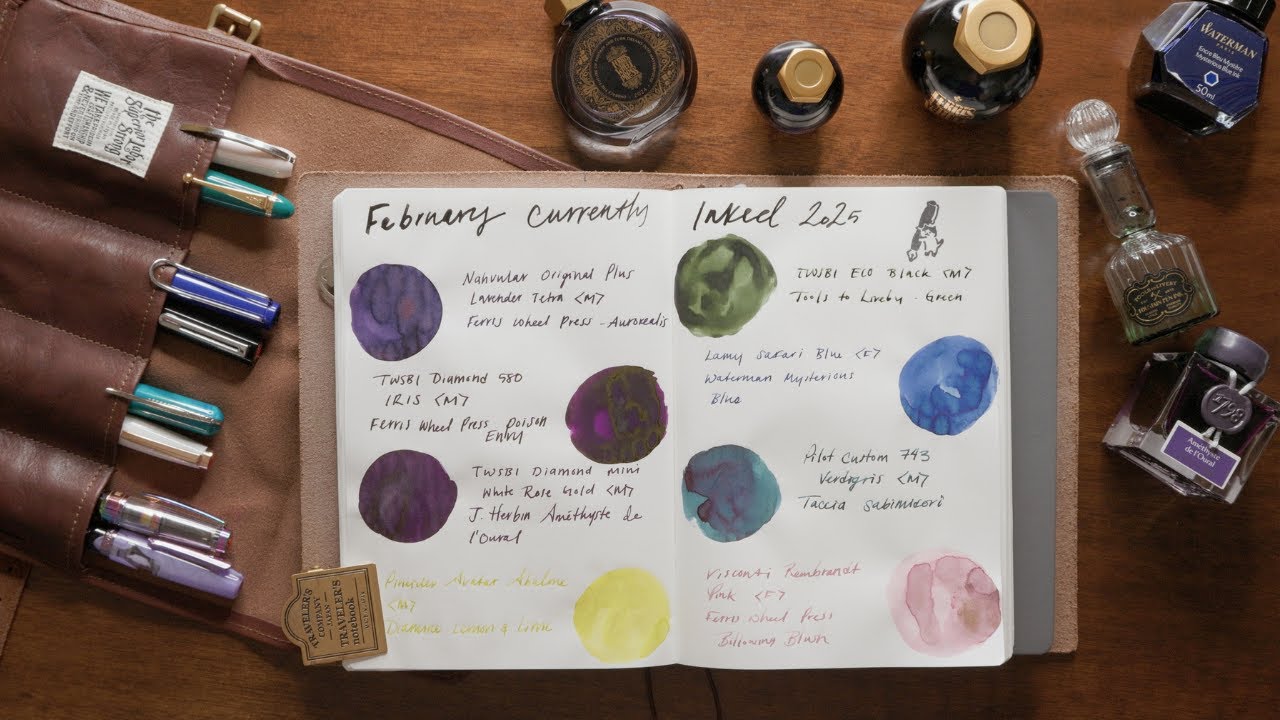 February Currently Inked 2025
Nahvalur Original Plus
Lavender Tetra <M>
Ferris Wheel Press - Aurorealis
TWSBI Diamond 580
IRIS <M>
Ferris Wheel Press Poison
Envy
TWSBI Diamond mini
White Rose Gold <M>
J. Herbin Améthyste de
l'Oural
Pineider Avatar Abalone
<M>
Diamine Lemon & Lime
TWSBI ECO Black <M>
Tools to Liveby - Green
Lamy Safari Blue <F>
Waterman Mysterious
Blue
Pilot Custom 743
Verdigris <M>
Taccia Sabimidori
Visconti Rembrandt
Pink <F>
Ferris Wheel Press
Billowing Blush
The
Superior Labor
Strong
TRAVELER'S
COMPANY
JAPAN
TRAVELER'S
notebook
WATERMAN
PARIS
Encre Bleu Mystère
Mysterious Blue Ink
50 ml
1798
Améthyste
de l'Oural